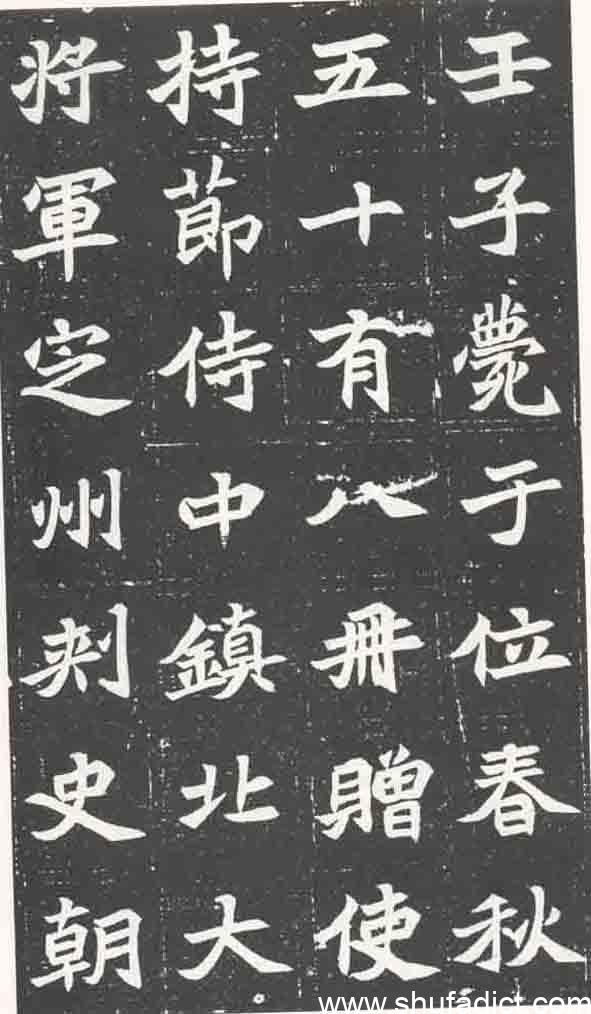 壬子薨于位春秋
五十有八冊贈使
持節侍中鎮北大
將軍定州刺史朝
www.shufadict.com